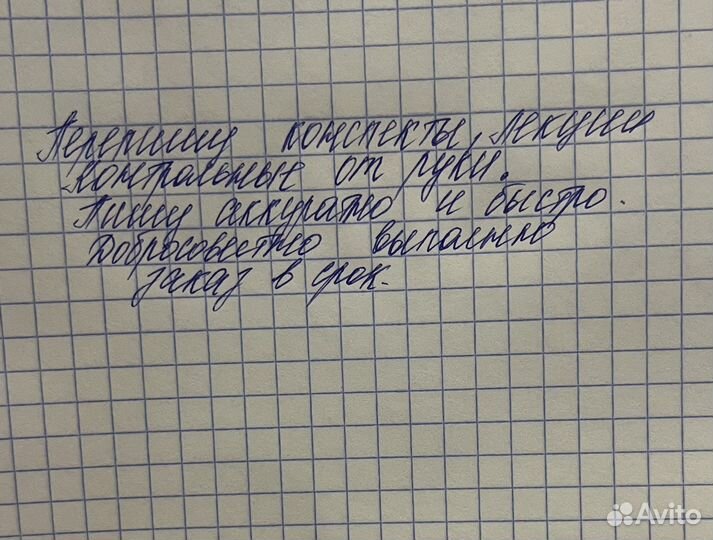 Перепишу конспекты, лекции
контрольные от руки.
Пишу аккуратно и быстро.
Добросовестно выполню
заказ в срок.
Avito